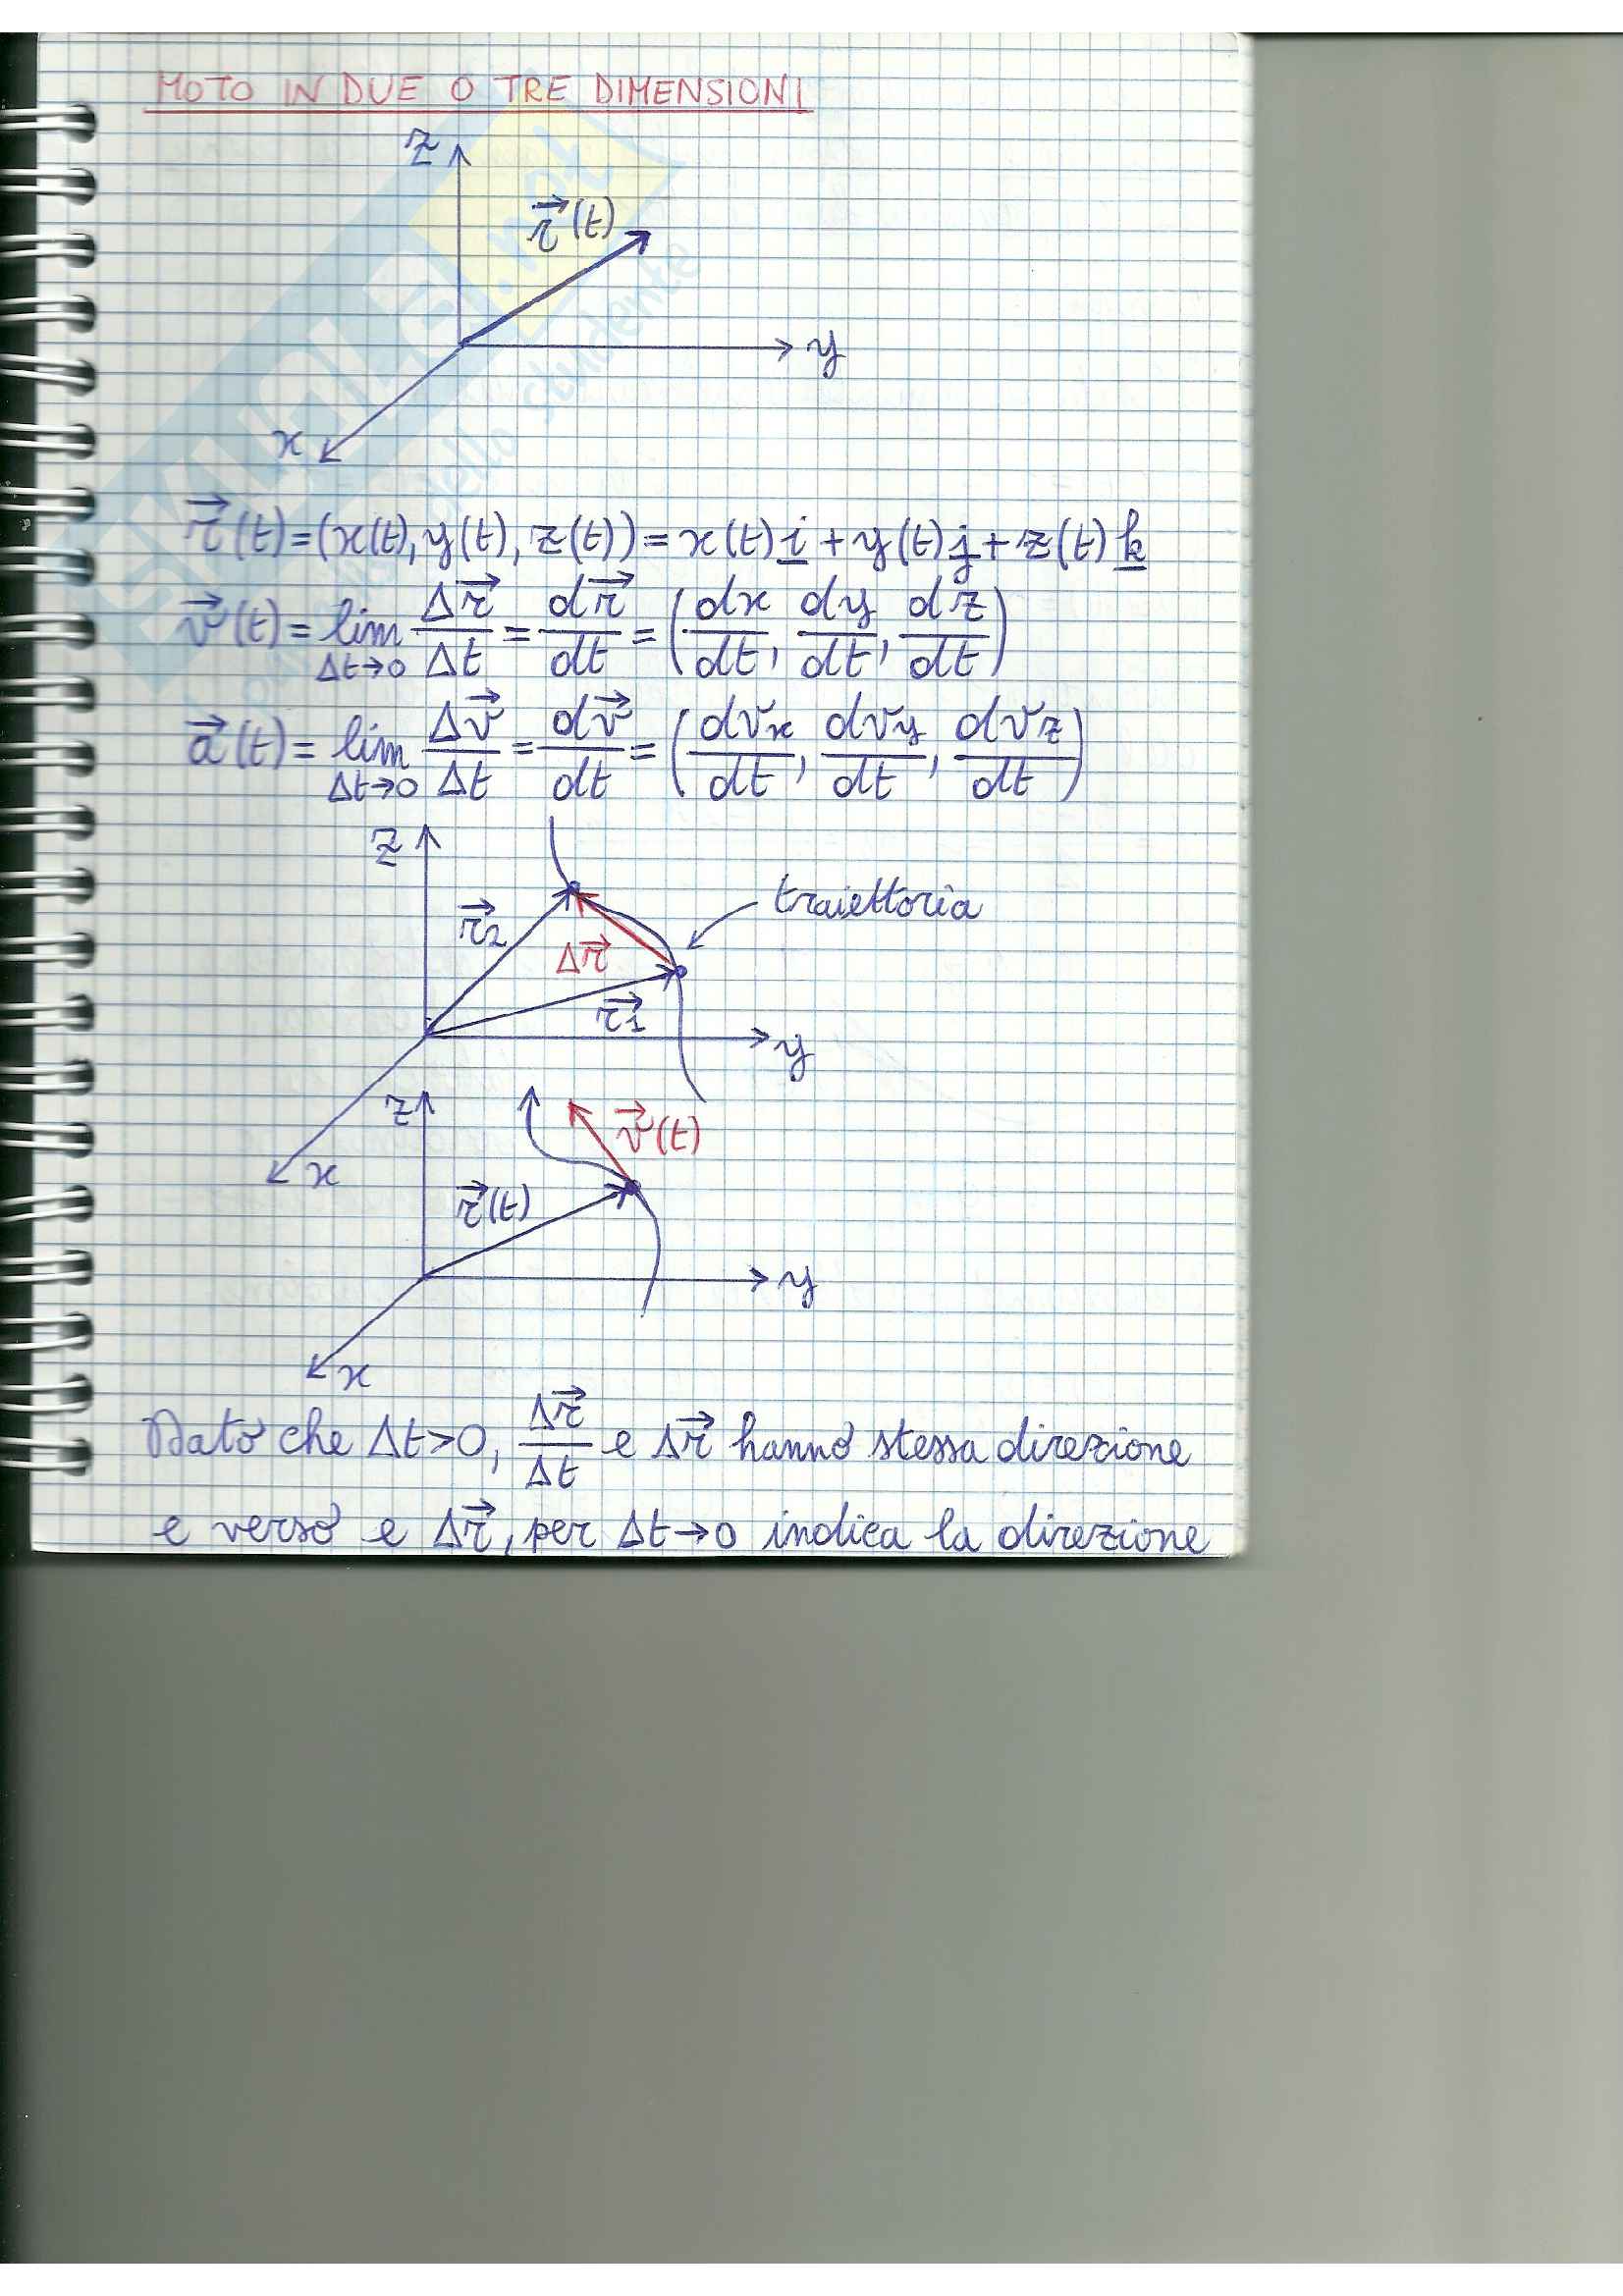 MOTO IN DUE O TRE DIMENSIONI
z
r⃗(t)
y
x
r⃗(t) = (x(t), y(t), z(t)) = x(t) i + y(t) j + z(t) k
v⃗(t) = lim Δt→0 Δr⃗/Δt = dr⃗/dt = (dx/dt, dy/dt, dz/dt)
a⃗(t) = lim Δt→0 Δv⃗/Δt = dv⃗/dt = (dvx/dt, dvy/dt, dvz/dt)
z
traiettoria
r⃗2
Δr⃗
r⃗1
y
x
z
v⃗(t)
r⃗(t)
y
x
Dato che Δt>0, Δr⃗/Δt e Δr⃗ hanno stessa direzione
e verso e Δr⃗, per Δt→0 indica la direzione
SKUOLA.net
dello studente